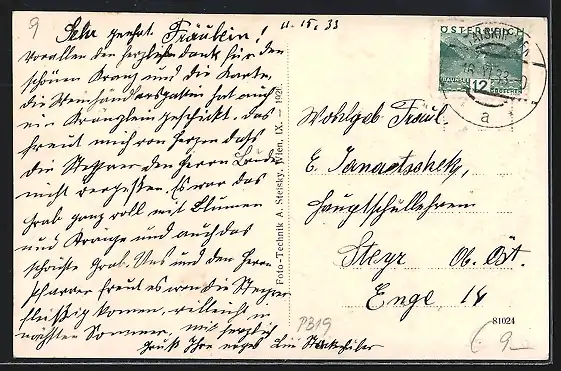 9
Sehr geehrt. Fräulein!
11. 15. 33
Vorallen den herzlichen dank für den
schönen Kranz und die Karte,
die Weinhändlersgattin hat auch
ein Kränzlein geschickt. das
freut mich von herzen dass
die Steyrer den Herrn
nicht vergessen. Es war das
Grab ganz voll mit Blumen
und Kränze und auch das
schönste Grab. Uns und den Herrn
Pfarrer freut es wen die Steyrer
fleißig komen, villeicht im
nächsten Sommer, mit herzlich
Gruß Ihre
Foto-Technik A. Stefsky, Wien, IX. — 192
ÖSTERREICH
12
GROSCHEN
33
a
Wohlgeb Fräul.
E. Janaetschek,
Hauptschullehrerin
Steyr Ob. Öst.
Enge 14
81024
PB19
9